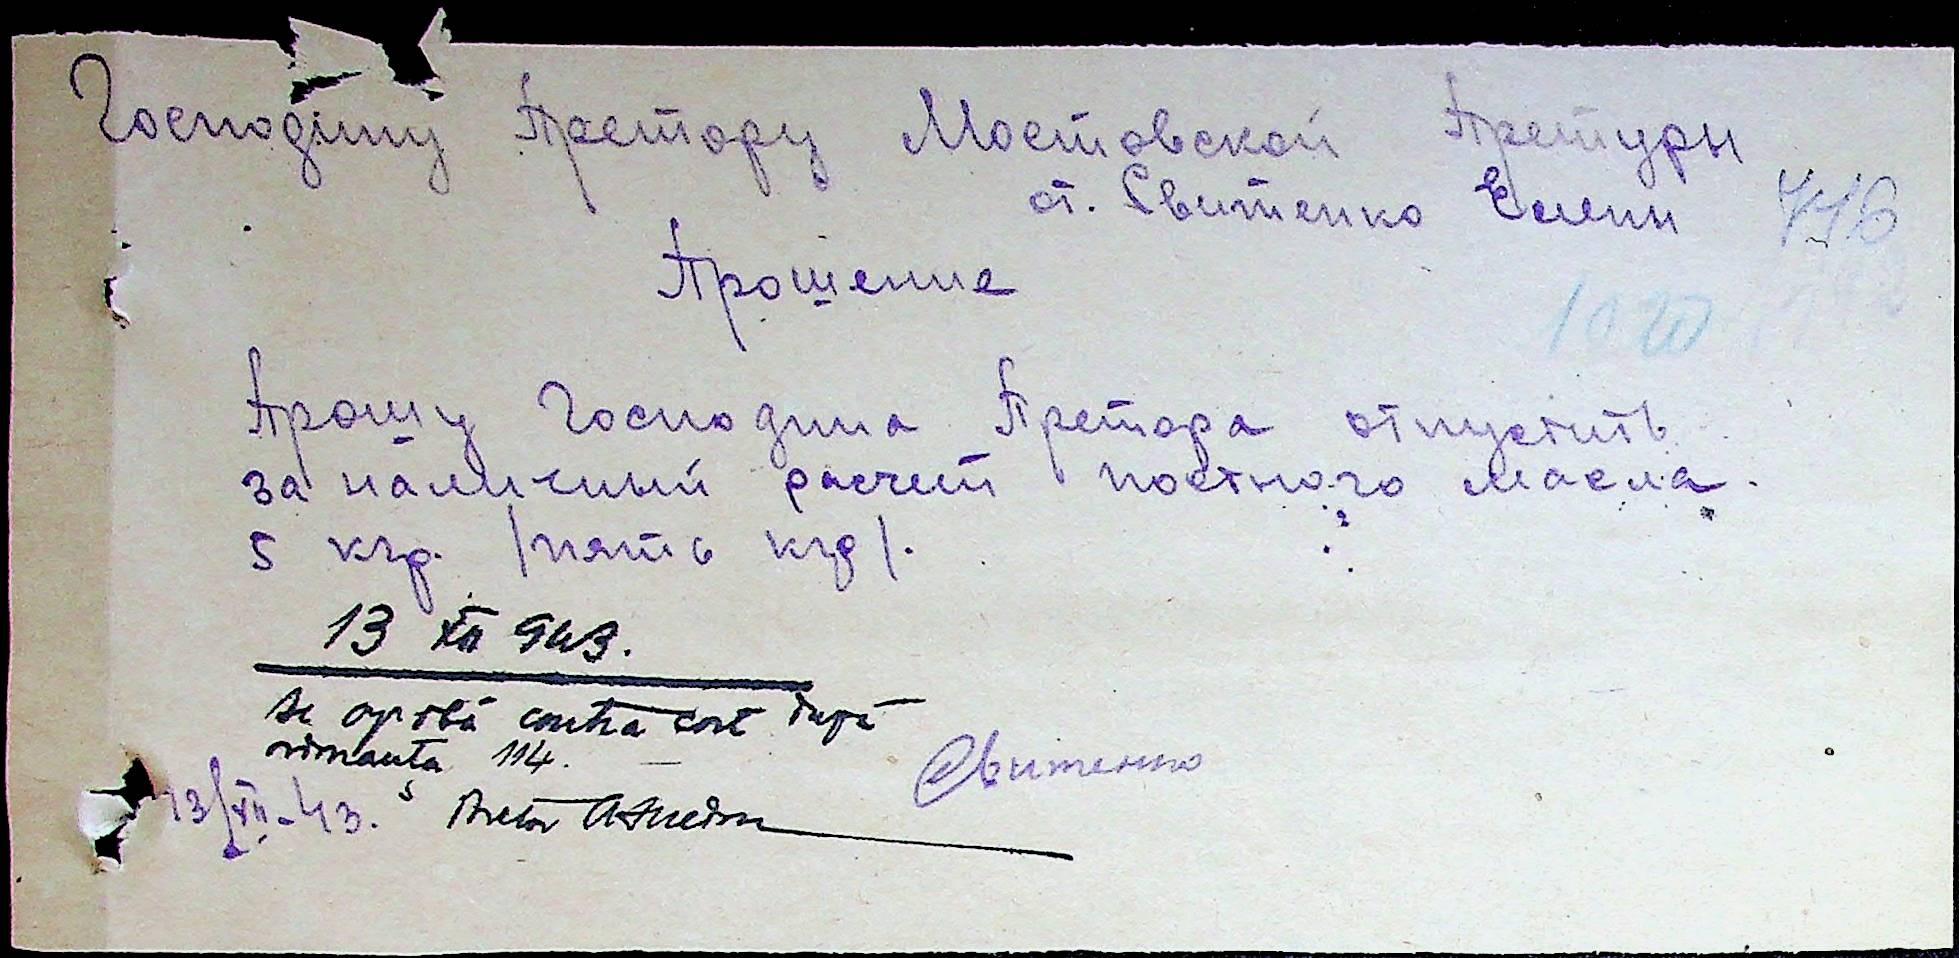 Господину Претору Мостовской Претуры
от. Свитенко Елены 776
Прошение
1020
Прошу Господина Претора отпустить
за наличный расчет постного масла.
5 кгр. /пять кгр/.
13 XII 943.
Se aprobă contra cost după
ordonanța 114.
Свитенко
13/XII-43. Pretor